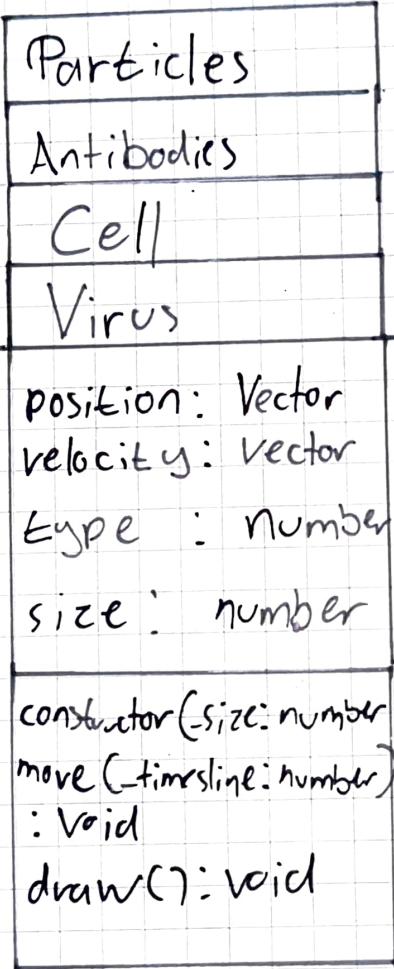 Particles
Antibodies
Cell
Virus
position: Vector
velocity: vector
type : number
size : number
constructor(_size: number
move(_timesline: number)
: void
draw(): void